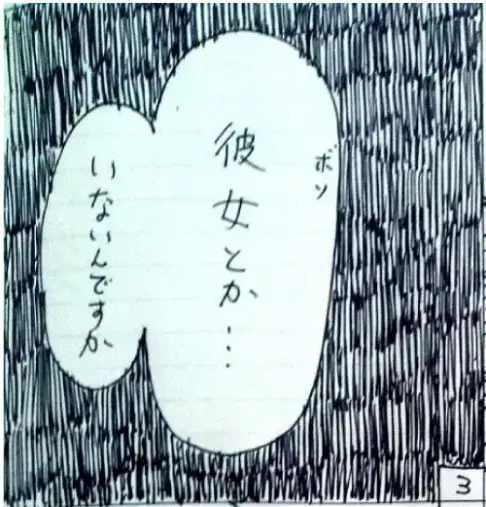 ボソ
彼女とか…
いないんですか
3